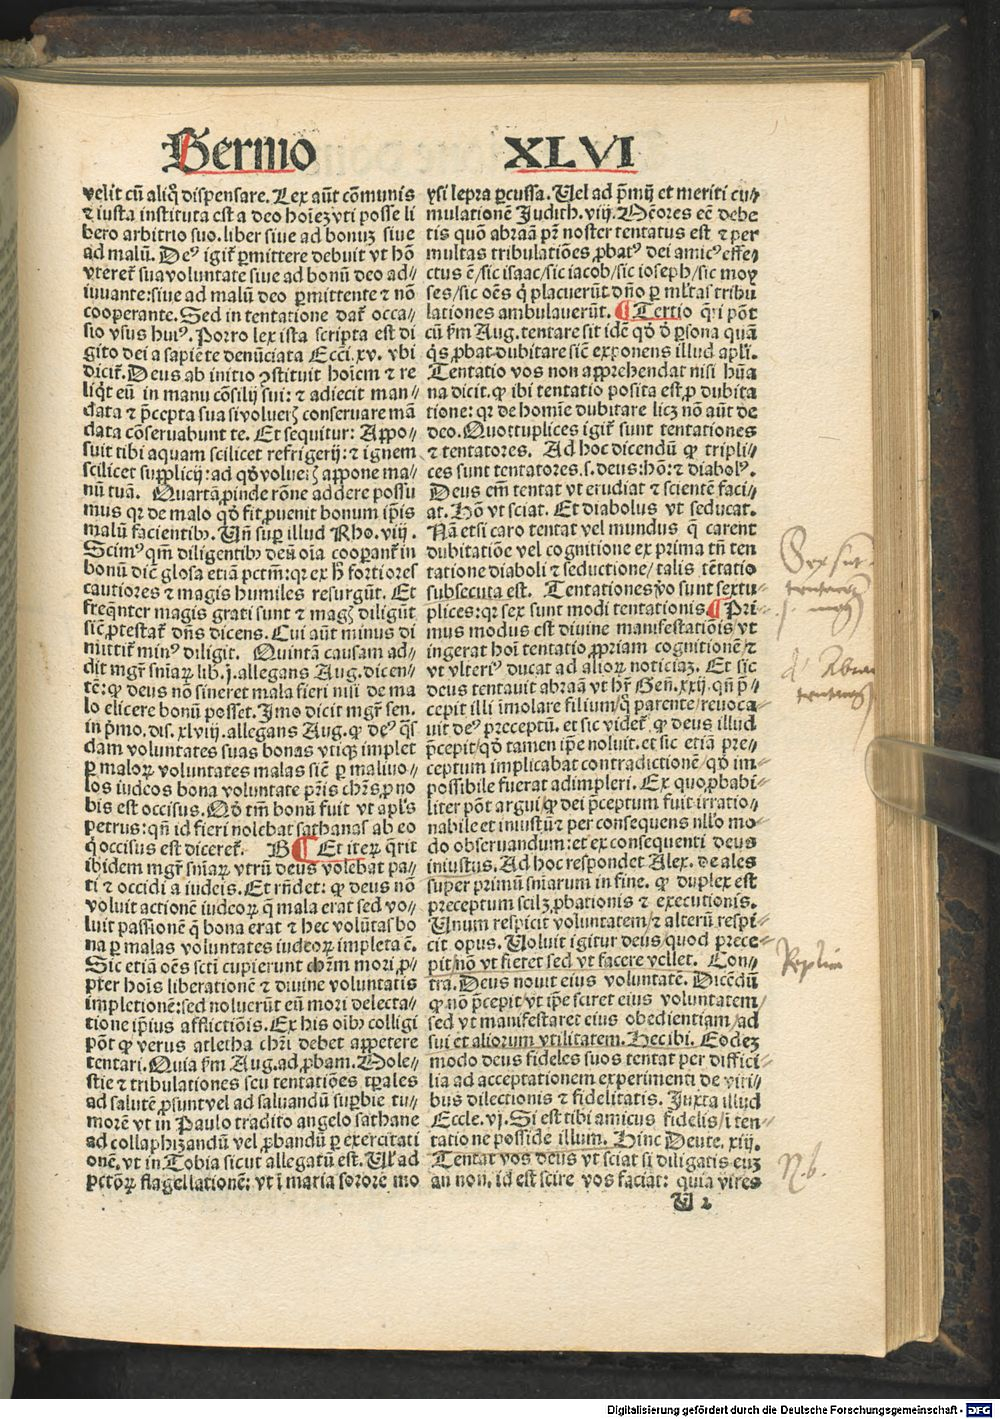 Sermo XLVI
velit cū aliq̄ dispensare. Lex aūt cōmunis
⁊ iusta instituta est a deo hoīeꝫ vti posse li
bero arbitrio suo. liber siue ad bonuꝫ siue
ad malū. Deꝰ igit᷑ ꝑmittere debuit vt hō
vteret᷑ sua voluntate siue ad bonū deo ad⸗
iuuante: siue ad malū deo ꝑmittente ⁊ nō
cooperante. Sed in tentatione dat᷑ occa⸗
sio vsus huiꝰ. Porro lex ista scripta est di
gito dei a sapiēte denūciata Ecci. xv. vbi
dicit᷑. Deus ab initio ꝯstituit hoīem ⁊ re
liqt eū in manu cōsilij sui: ⁊ adiecit man⸗
data ⁊ p̄cepta sua si volueꝭ conseruare mā
data cōseruabunt te. Et sequitur: Appo⸗
suit tibi aquam scilicet refrigerij: ⁊ ignem
scilicet supplicij: ad qd̓ volueꝭ appone ma⸗
nū tuā. Quartā ꝓinde rōne addere possu
mus qꝛ de malo qd̓ fit ꝓuenit bonum ip̄is
malū facientibꝰ. Uñ sup̱ illud Rho. viij.
Scimꝰ qm̄ diligentibꝰ deū oīa cooꝑant᷑ in
bonū dic̄ glosa etiā pctm̄: qꝛ ex h̓ fortiores
cautiores ⁊ magis humiles resurgūt. Et
freq̄nter magis grati sunt ⁊ magꝭ diligūt
sic̄ ꝓtestat᷑ dn̄s dicens. Cui aūt minus di
mittit᷑ minꝰ diligit. Quintā causam ad⸗
dit mgr̄ sniaꝝ lib. j. allegans Aug. dicen⸗
tē: ꝙ deus nō sineret mala fieri nisi de ma
lo elicere bonū posset. Imo dicit mgr̄ sen.
in p̄mo. dis. xlviij. allegans Aug. ꝙ deꝰ q̄s
dam voluntates suas bonas vtiqꝫ implet
ꝑ maloꝝ voluntates malas sic̄ ꝑ maliuo⸗
los iudeos bona voluntate pr̄is chr̄s ꝓ no
bis est occisus. Qd̓ tm̄ bonū fuit vt apl̓s
petrus: qn̄ id fieri nolebat sathanas ab eo
q̇ occisus est diceret᷑. B ¶ Et iteꝝ q̄rit
ibidem mgr̄ sniaꝝ vtrū deus volebat pa⸗
ti ⁊ occidi a iudeis. Et rn̄det: ꝙ deus nō
voluit actionē iudeoꝝ q̄ mala erat sed vo⸗
luit passionē q̄ bona erat ⁊ hec volūtas bo
na ꝑ malas voluntates iudeoꝝ impleta ē.
Sic etiā oēs scti cupierunt chr̄m mori ꝓ⸗
pter hoīs liberationē ⁊ diuine voluntatis
impletionē: sed noluerūt eū mori delecta⸗
tione ip̄ius afflictiōis. Ex his oībꝰ colligi
pōt ꝙ verus athleta chr̄i debet appetere
tentari. Quia ẜm Aug. ad ꝓbam. Mole⸗
stie ⁊ tribulationes seu tentatiōes tꝑales
ad salutē ꝓsunt vel ad saluandū suꝑbie tu⸗
morē vt in Paulo tradito angelo sathane
ad collaphizandū vel ꝓbandū ꝑ exercitati
onē. vt in Tobia sicut allegatū est. Ul̓ ad
pctōꝝ flagellationē: vt ī maria sorore mo
ysi lepra ꝑcussa. Uel ad p̄mij et meriti cu⸗
mulationē Judith. viij. Memores eē debe
tis quō abraā pr̄ noster tentatus est ⁊ per
multas tribulatiōes ꝓbatꝰ dei amicꝰ effe⸗
ctus ē/ sic isaac/ sic iacob/ sic ioseph/ sic moy
ses/ sic oēs q̇ placuerūt dn̄o ꝑ ml̓tas tribu
lationes ambulauerūt. ¶ Tertio q̄ri pōt
cū ẜm Aug. tentare sit idē qd̓ d̓ ꝑsona quā
q̇s ꝓbat dubitare sic̄ exponens illud apl̓i.
Tentatio vos non apprehendat nisi hūa
na dicit. ꝙ ibi tentatio posita est ꝓ dubita
tione: qꝛ de homīe dubitare licꝫ nō aūt de
deo. Quottuplices igit᷑ sunt tentationes
⁊ tentatores. Ad hoc dicendū ꝙ tripli⸗
ces sunt tentatores. s. deus: hō: ⁊ diabolꝰ.
Deus em̄ tentat vt erudiat ⁊ scientē faci⸗
at. Hō vt sciat. Et diabolus vt seducat.
Nā etsi caro tentat vel mundus q̄ carent
dubitatiōe vel cognitione ex prima tn̄ ten
tatione diaboli ⁊ seductione/ talis tētatio
subsecuta est. Tentationes ꝟo sunt sextu⸗
plices: qꝛ sex sunt modi tentationis. ¶ Pri⸗
mus modus est diuine manifestatiōis vt
ingerat hoī tentatio ꝓpriam cognitionē ⁊
vt vlteriꝰ ducat ad alioꝝ noticiaꝫ. Et sic
deus tentauit abraā vt hr̄ Geñ. xxij. qn̄ p̄⸗
cepit illi īmolare filium/ q̄ parente/ reuoca⸗
uit deꝰ preceptū. et sic videt᷑ ꝙ deus illud
p̄cepit/ qd̓ tamen ip̄e noluit. et sic etiā pre⸗
ceptum implicabat contradictionē/ qd̓ im⸗
possibile fuerat adimpleri. Ex quo ꝓbabi⸗
liter pōt argui/ ꝙ dei p̄ceptum fuit irratio⸗
nabile et iniustū ⁊ per consequens nullo mo⸗
do obseruandum: et ex consequenti deus
iniustus. Ad hoc respondet Alex. de ales
super primū sniarum in fine. ꝙ duplex est
preceptum scilꝫ ꝓbationis ⁊ executionis.
Unum respicit voluntatem/ ⁊ alterū respi⸗
cit opus. Uoluit igitur deus/ quod prece⸗
pit/ nō vt fieret sed vt facere vellet. Con⸗
tra. Deus nouit eius voluntatē. Dicēdū
ꝙ nō p̄cepit vt ip̄e sciret eius voluntatem/
sed vt manifestaret eius obedientiam/ ad
sui et aliorum vtilitatem. Hec ibi. Eodeꝫ
modo deus fideles suos tentat per diffici⸗
lia ad acceptationem experimenti de viri⸗
bus dilectionis ⁊ fidelitatis. Juxta illud
Eccle. vj. Si est tibi amicus fidelis/ ī ten⸗
tatione posside illum. Hinc Deute. xiij.
Tentat vos deus vt sciat si diligatis euꝫ
an non. id est scire vos faciat: quia vires
U 2
Replica
N. b.
Digitalisierung gefördert durch die Deutsche Forschungsgemeinschaft - DFG